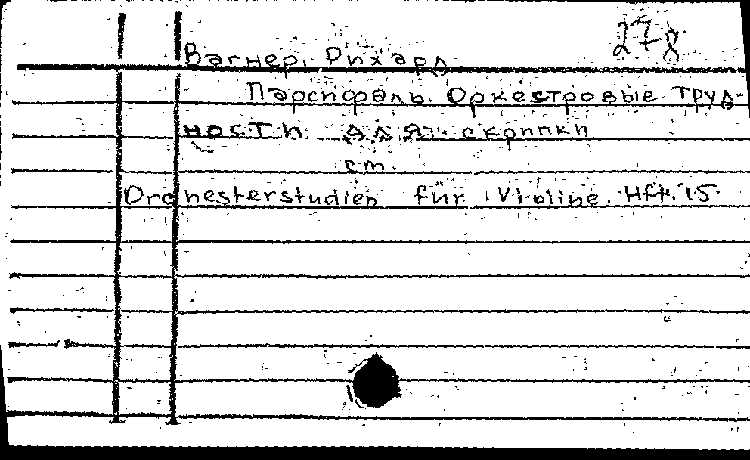 278
Вагнер, Рихард
Парсифаль. Оркестровые труд-
ности для скрипки
см.
Orchesterstudien für Violine. Hft. 15